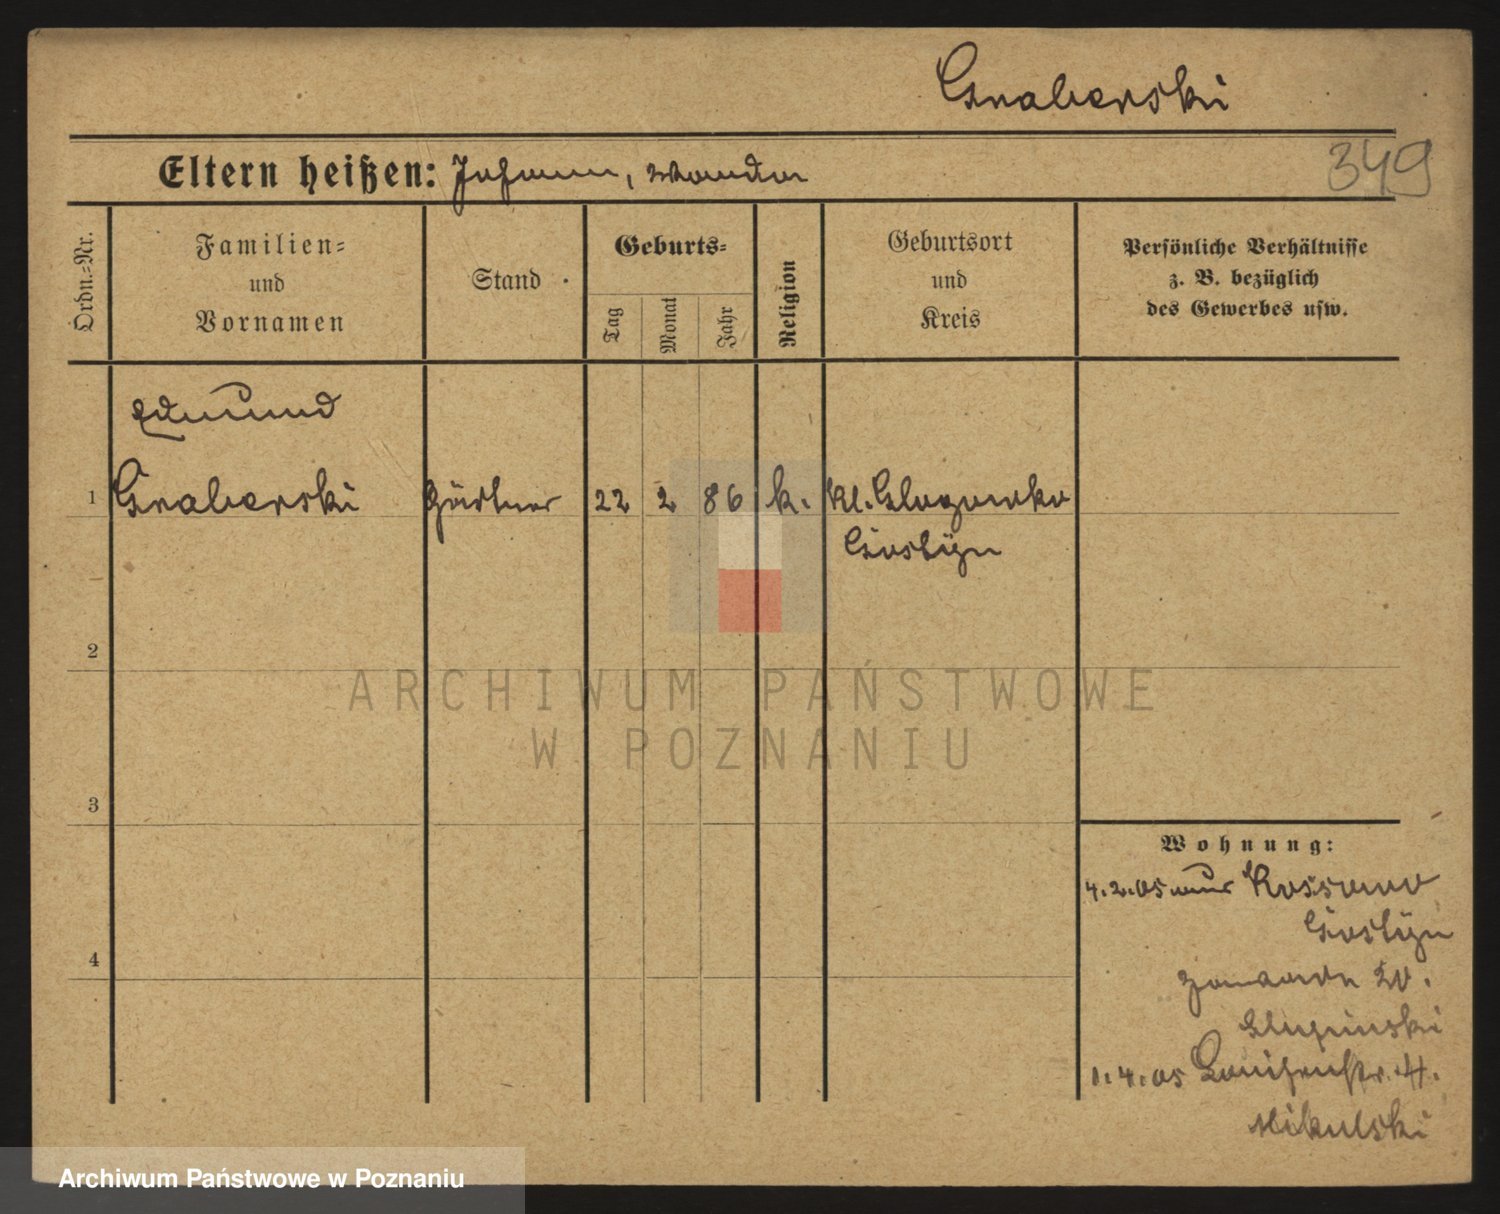 Graberski
349
Eltern heißen: Johann, Wanda
Ordn.=Nr.
Familien=
und
Vornamen
Stand
Geburts=
Tag
Monat
Jahr
Religion
Geburtsort
und
Kreis
Persönliche Verhältnisse
z. B. bezüglich
des Gewerbes usw.
Edmund
1 Graberski Gärtner 22 2 86 k. Kl. Glogowko
Gostÿn
2
3
4
ARCHIWUM PAŃSTWOWE
W POZNANIU
Wohnung:
4.2.05 aus Kossowo
Gostÿn
20.
Slupinski
1.4.05 Louisenstr. 4.
Mikulski
Archiwum Państwowe w Poznaniu